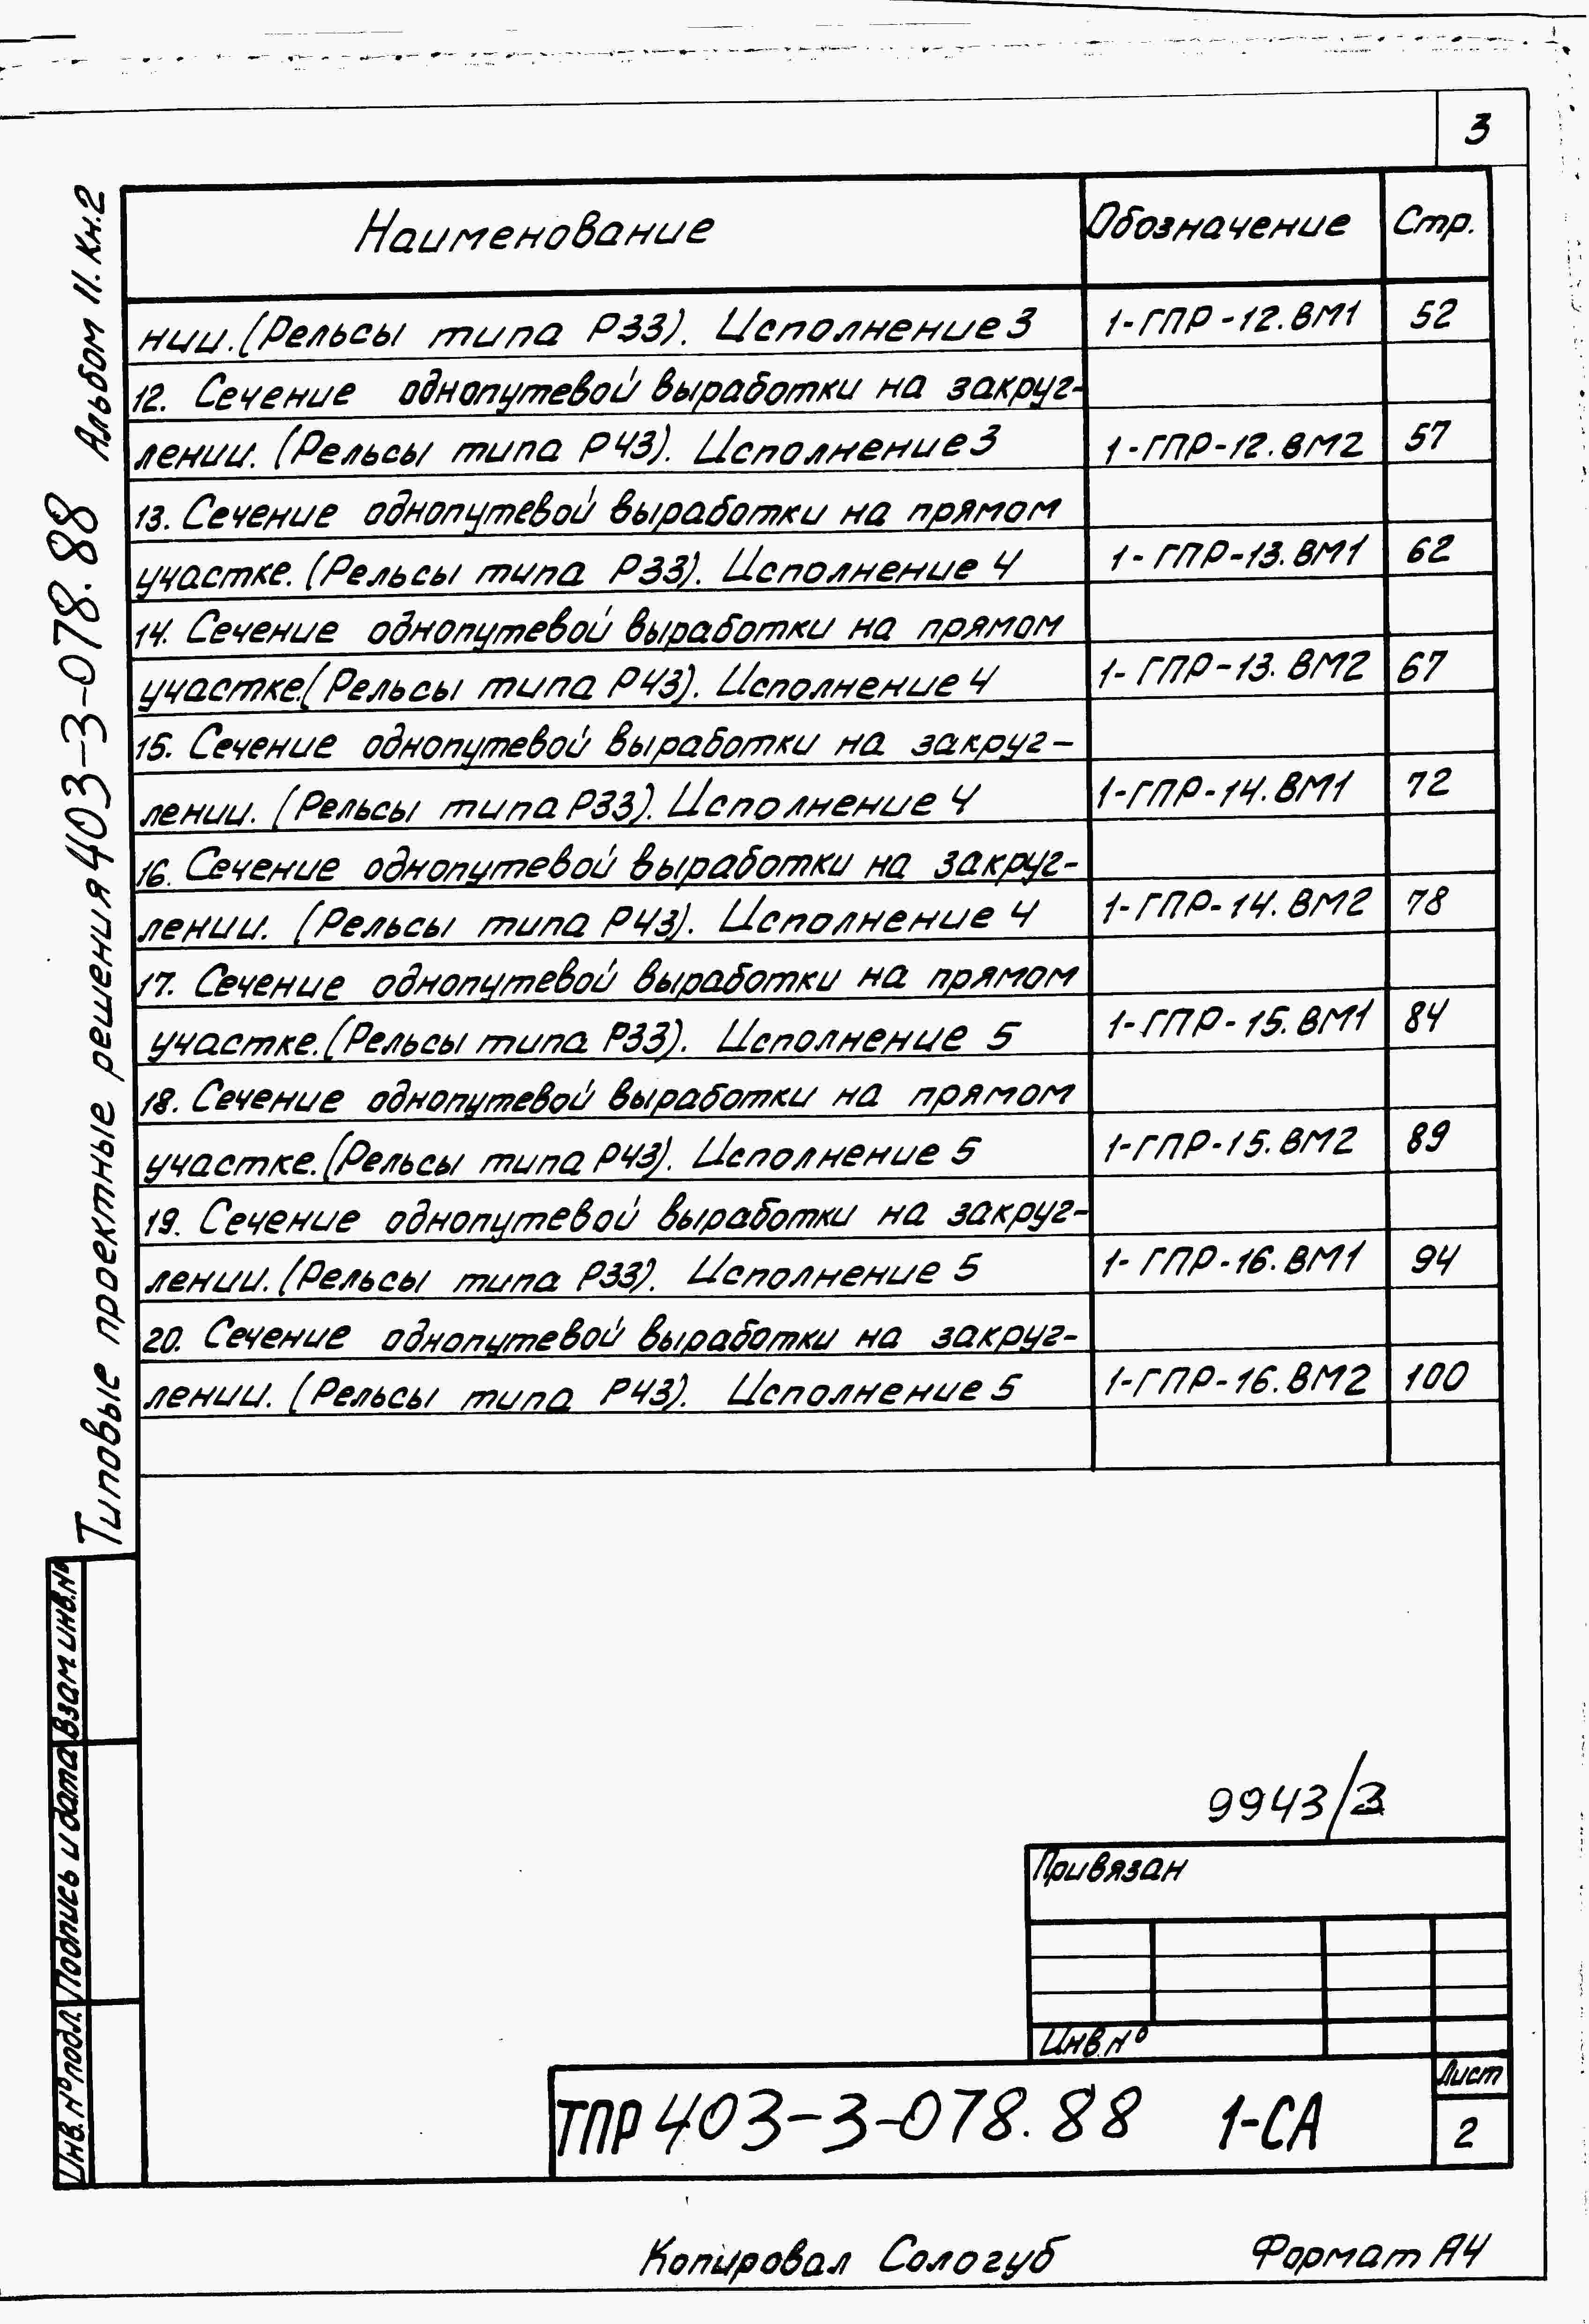 3
Наименование Обозначение Стр.
нии. (Рельсы типа Р33). Исполнение 3 1-ГПР-12.ВМ1 52
12. Сечение однопутевой выработки на закруг-
лении. (Рельсы типа Р43). Исполнение 3 1-ГПР-12.ВМ2 57
13. Сечение однопутевой выработки на прямом
участке. (Рельсы типа Р33). Исполнение 4 1-ГПР-13.ВМ1 62
14. Сечение однопутевой выработки на прямом
участке. (Рельсы типа Р43). Исполнение 4 1-ГПР-13.ВМ2 67
15. Сечение однопутевой выработки на закруг-
лении. (Рельсы типа Р33). Исполнение 4 1-ГПР-14.ВМ1 72
16. Сечение однопутевой выработки на закруг-
лении. (Рельсы типа Р43). Исполнение 4 1-ГПР-14.ВМ2 78
17. Сечение однопутевой выработки на прямом
участке. (Рельсы типа Р33). Исполнение 5 1-ГПР-15.ВМ1 84
18. Сечение однопутевой выработки на прямом
участке. (Рельсы типа Р43). Исполнение 5 1-ГПР-15.ВМ2 89
19. Сечение однопутевой выработки на закруг-
лении. (Рельсы типа Р33). Исполнение 5 1-ГПР-16.ВМ1 94
20. Сечение однопутевой выработки на закруг-
лении. (Рельсы типа Р43). Исполнение 5 1-ГПР-16.ВМ2 100
Типовые проектные решения 403-3-078.88 Альбом II. Кн.2
Инв. № подл. Подпись и дата Взам. инв. №
9943/3
Привязан
Инв. №
ТПР 403-3-078.88 1-СА
Лист
2
Копировал Сологуб Формат А4